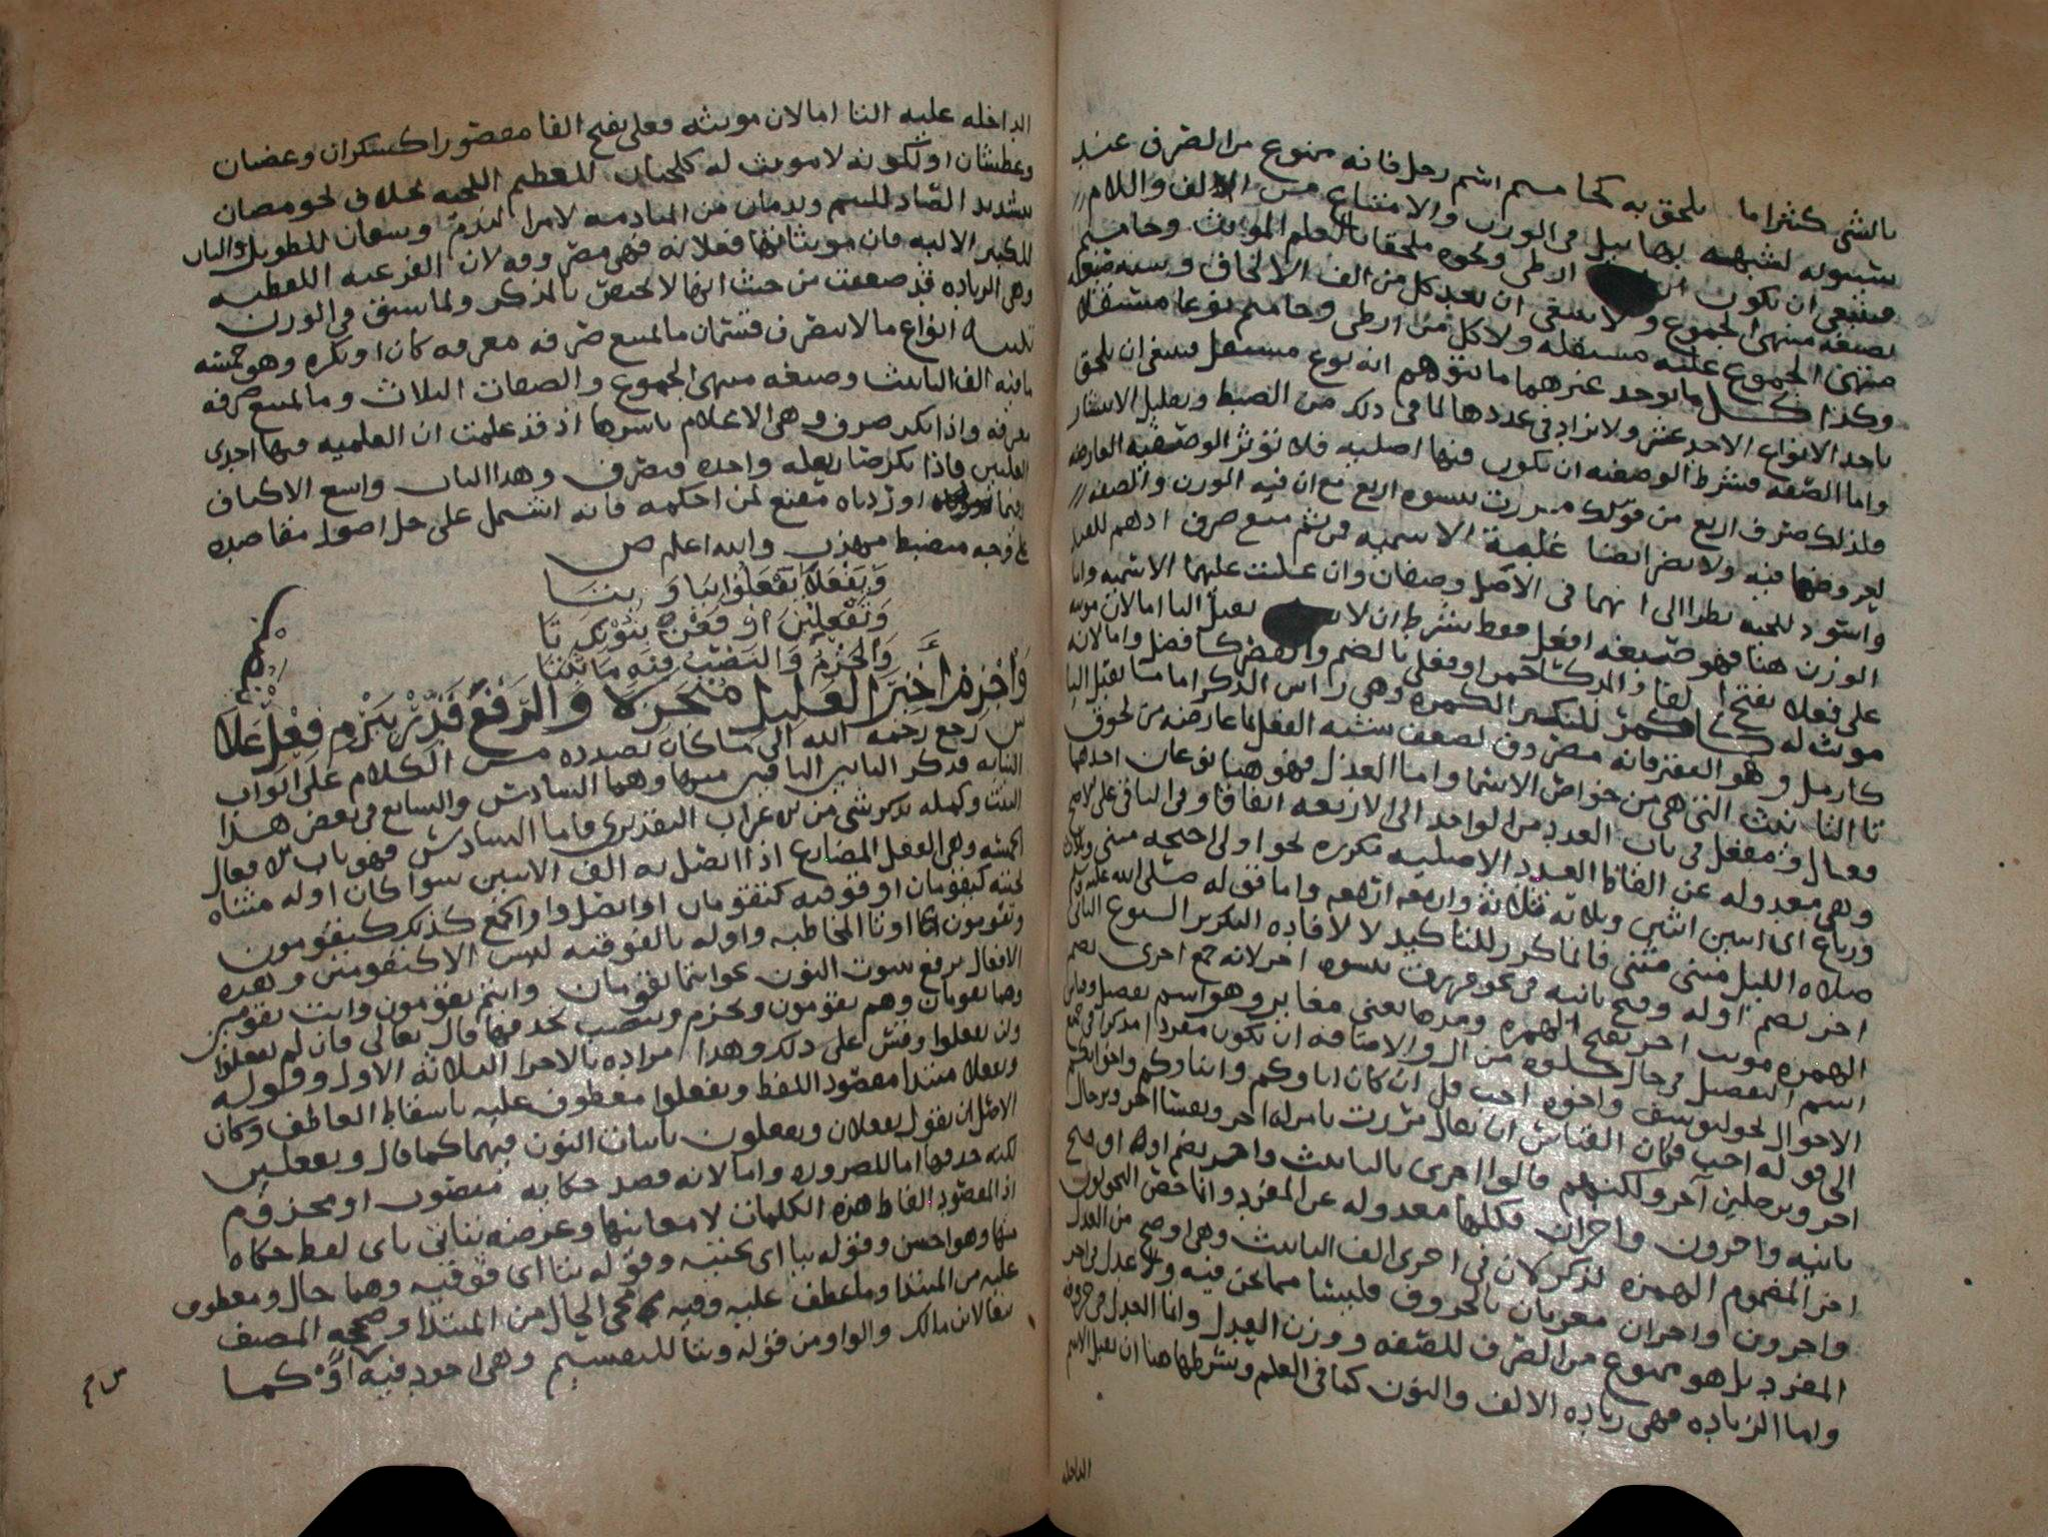 بالشي كثيرا ما يلحق به كحاميم اسم رجل فانه ممنوع من الصرف عند
سيبويه لشبهه بهابيل في الوزن والامتناع من الالف واللام
فينبغي ان يكون ارطى ونحوه ملحقا بالعلم المونث وحاميم
بصيغه منتهى الجموع ولا ينبغي ان يعد كل من الف الالحاق وشبه صيغه
منتهى الجموع علة مستقله ولا كل من ارطى وحاميم نوعا مستقلا
وكذا كل ما يوجد غيرهما ما يتوهم انه نوع مستقل فينبغي ان يلحق
باحد الانواع الاحد عشر ولا يزاد في عددها لما في ذلك من الضبط وتقليل الانتشار
واما الصفه فشرط الوصفيه ان تكون فيها اصليه فلا تؤثر الوصفيه العارضه
ولذلك صرف اربع من قولك مررت بنسوه اربع مع ان فيه الوزن والصفه
لعروضها فيه ولا يضر ايضا غلبة الاسميه ومن ثم منع صرف ادهم للقيد
واسود للحيه نظرا الى انهما في الاصل وصفان وان غلبت عليهما الاسميه واما
الوزن هنا فهو صيغه افعل فقط بشرط ان لا يقبل التا اما لان مونثه
على فعلا بفتح الفا والمد كاحمر او فعلى بالضم والقصر كافضل واما لانه لا
مونث له كاكمر للكبير الكمره وهي راس الذكر اما ما يقبل التا
كارمل وهو الفقير فانه مصروف لضعف شبه الفعل بما عارضه من لحوق
تا التانيث التي هي من خواص الاسما واما العدل فهو هنا نوعان احدهما
فعال ومفعل في باب العدد من الواحد الى الاربعه اتفاقا وفي الباقي على الاصح
وهي معدوله عن الفاظ العدد الاصليه مكرره نحو اولي اجنحه مثنى وثلاث
ورباع اي اثنين اثنين وثلاثه ثلاثة واربعه اربعه واما قوله صلى الله عليه وسلم
صلاه الليل مثنى مثنى فانما كرر للتاكيد لا لافاده التكرير النوع الثاني
اخر بضم اوله وفتح ثانيه في نحو مررت بنسوه اخر لانه جمع اخرى بضم
الهمزه مونث اخر بفتح الهمزه ومدها بمعنى مغاير وهو اسم تفضيل وقياس
اسم التفضيل في حال خلوه من ال والاضافه ان يكون مفردا مذكرا في جميع
الاحوال نحو ليوسف واخوه احب قل ان كان اباوكم وابناوكم واخوانكم
الى قوله احب فكان القياس ان يقال مررت بامراه اخر وبنسا اخر وبرجال
اخر وبرجلين آخر ولكنهم قالوا اخرى بالتانيث واخر بضم اوله او فتح
ثانيه واخرون واخران فكلها معدوله عن المفرد وانما خص النحويون
اخر المضموم الهمزه بالذكر لان في اخرى الف التانيث وهي اوضح من العدل
واخرون واخران معربان بالحروف فليسا مما نحن فيه ولا عدل في اخر
المفرد بل هو ممنوع من الصرف للصفه ووزن الفعل واما العدل
واما الزياده فهي زياده الالف والنون كما في العلم وشرطها هنا ان يقبل الاسم
الداخله
الداخله عليه التا اما لان مونثه فعلى بفتح الفا مقصورا كسكران وغضبان
وعطشان او لكونه لا مونث له كلحيان للعظيم اللحيه بخلاف نحو مصان
بتشديد الصاد للئيم وندمان من المنادمه لا من الندم وسيفان للطويل واليان
للكبير الاليه فان مونثاتها فعلانه فهي مصروفه لان الفرعيه اللفظيه
وهي الزياده قد ضعفت من حيث انها لا تختص بالمذكر ولما سبق في الوزن
تنبيه انواع ما لا ينصرف قسمان ما يمنع صرفه معرفه كان او نكره وهو خمسه
ما فيه الف التانيث وصيغه منتهى الجموع والصفات الثلاث وما يمنع صرفه
معرفه واذا نكر صرف وهي الاعلام باسرها اذ قد علمت ان العلميه فيها احدى
العلتين فاذا نكر صار بعله واحده فيصرف وهذا الباب واسع الاكناف
وفيما اوردناه مقنع لمن احكمه فانه اشتمل على جل اصول مقاصده
على وجه منضبط مهذب والله اعلم ص
وَيَفْعَلَا يَفْعَلُوا بيَا وَبتَا
وَتَفْعَلِيْنَ اوْ بنُوْنٍ
وَالجَزْمُ وَالنَصْبُ فيه مَا ثبتَا
وَاجْزِمْ أخيرَ العَليلِ مُنْجَزِلًا وَالرَفعَ قَدِّرْ بيَرْمِ فِعْلِ عَلَا
ش رجع رحمه الله الى ما كان بصدده من الكلام على ابواب
النيابه فذكر البابين الباقيين منها وهما السادس والسابع في بعض هذا
البيت وكمله بذكر شي من الاعراب التقديري فاما السادس فهو باب الافعال
الخمسه وهي الفعل المضارع اذا اتصل به الف الاثنين سوا كان اوله مثناه
تحتيه كيقومان او فوقيه كتقومان او اتصل واو الجمع كذلك كيقومون
وتقومون او تا المخاطبه واوله بالفوقيه ليس الا كتقومين وهذه
الافعال ترفع بثبوت النون نحو انتما تقومان وانتم تقومون وانت تقومين
وهما يقومان وهم يقومون وتجزم وتنصب بحذفها قال تعالى فان لم تفعلوا
ولن تفعلوا وقس على ذلك وهذا مراده بالاجزا الثلاثه الاول وقوله
ويفعلا مبتدا مقصود اللفظ ويفعلوا معطوف عليه باسقاط العاطف وكان
الاصل ان يقول يفعلان ويفعلون باثبات النون فيهما كما قال وتفعلين
لكنه حذفها اما للضروره واما لانه قصد حكايه منصوب او مجزوم
اذ المقصود الفاظ هذه الكلمات لا معانيها وعرضه بناني باي لفظ حكاه
منها وهو احسن وقوله بيا اي تحتيه وقوله بتا اي فوقيه وهما حال ومعطوف
عليه من المبتدا وما عطف عليه وفيه مجي الحال من المبتدا وصححه المصنف
تبعا لابن مالك والواو من قوله وبتا للتقسيم وهي اجود فيه او كما